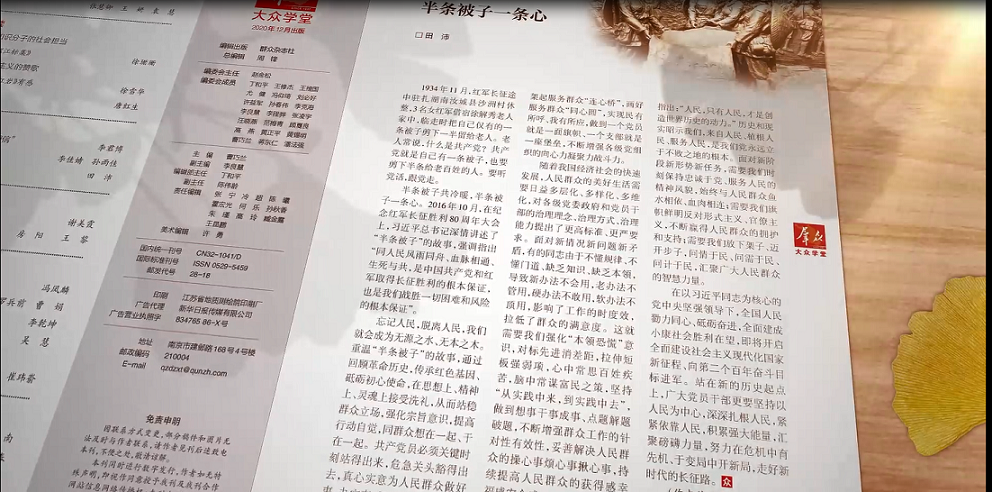 识分子的社会担当
徐珊珊
主义的赞歌
徐雪华
唐红生
李君博
李佳婧 孙雨佳
田 沛
谢美霞
房 阳 王 馨
冯凤麟
李乾坤
吴 慧
大众学堂
2020年12月出版
编辑出版 群众杂志社
总编辑 周 锋
编委会主任 赵金松
编委会成员
主编 曹巧兰
副主编 李良慧
编辑部主任 丁和平
副主任 陈伟龄
责任编辑
美术编辑 许 勇
国内统一刊号 CN32-1041/D
国际标准刊号 ISSN 0529-5459
邮发代号 28-18
印刷 江苏省地质测绘院印刷厂
广告代理 新华日报传媒有限公司
广告营业执照字 834765 86-X号
地址 南京市建邺路168号4号楼
邮政编码 210004
E-mail qzdzxt@qunzh.com
免责申明
因联系方式变更,部分稿件和图片无
法及时与作者联系,请作者见刊后速致电
本刊,不便之处,敬请谅解。
本刊同时进行数字发行,作者如无特
殊声明,即视作同意授予我刊及我刊合作
半条被子一条心
□田 沛
1934年11月,红军长征途
中驻扎湖南汝城县沙洲村休
整,3名女红军借宿徐解秀老人
家中,临走时把自己仅有的一
条被子剪下一半留给老人。老
人常说,什么是共产党?共产
党就是自己有一条被子,也要
剪下半条给老百姓的人。要听
党话,跟党走。
半条被子共冷暖,半条被
子一条心。2016年10月,在纪
念红军长征胜利80周年大会
上,习近平总书记深情讲述了
“半条被子”的故事,强调指出
“同人民风雨同舟、血脉相通、
生死与共,是中国共产党和红
军取得长征胜利的根本保证,
也是我们战胜一切困难和风险
的根本保证”。
忘记人民,脱离人民,我们
就会成为无源之水、无本之木。
重温“半条被子”的故事,通过
回顾革命历史,传承红色基因、
砥砺初心使命,在思想上、精神
上、灵魂上接受洗礼,从而站稳
群众立场,强化宗旨意识,提高
行动自觉,同群众想在一起、干
在一起。共产党员必须关键时
刻站得出来,危急关头豁得出
去,真心实意为人民群众做好
架起服务群众“连心桥”,画好
服务群众“同心圆”,实现民有
所呼、我有所应,做到一个党员
就是一面旗帜、一个支部就是
一座堡垒,不断增强各级党组
织的向心力凝聚力战斗力。
随着我国经济社会的快速
发展,人民群众的美好生活需
要日益多层化、多样化、多维
化,对各级党委政府和党员干
部的治理理念、治理方式、治理
能力提出了更高标准、更严要
求。面对新情况新问题新矛
盾,有的同志由于不懂规律、不
懂门道、缺乏知识、缺乏本领,
导致新办法不会用,老办法不
管用,硬办法不敢用,软办法不
顶用,影响了工作的时度效,
拉低了群众的满意度。这就
需要我们强化“本领恐慌”意
识,对标先进消差距,拉伸短
板强弱项,心中常思百姓疾
苦,脑中常谋富民之策,坚持
“从实践中来,到实践中去”,
做到想事干事成事,点题解题
破题,不断增强群众工作的针
对性有效性,妥善解决人民群
众的操心事烦心事揪心事,持
续提高人民群众的获得感幸
指出:“人民,只有人民,才是创
造世界历史的动力。”历史和现
实昭示我们,来自人民、植根人
民、服务人民,是我们党永远立
于不败之地的根本。面对新阶
段新形势新任务,需要我们时
刻保持忠诚于党、服务人民的
精神风貌,始终与人民群众鱼
水相依、血肉相连;需要我们旗
帜鲜明反对形式主义、官僚主
义,不断赢得人民群众的拥护
和支持;需要我们放下架子,迈
开步子,问情于民、问需于民、
问计于民,汇聚广大人民群众
的智慧力量。
在以习近平同志为核心的
党中央坚强领导下,全国人民
勠力同心、砥砺奋进,全面建成
小康社会胜利在望,即将开启
全面建设社会主义现代化国家
新征程、向第二个百年奋斗目
标进军。站在新的历史起点
上,广大党员干部更要坚持以
人民为中心,深深扎根人民,紧
紧依靠人民,积累强大能量,汇
聚磅礴力量,努力在危机中育
先机、于变局中开新局,走好新
时代的长征路。众
群众
大众学堂